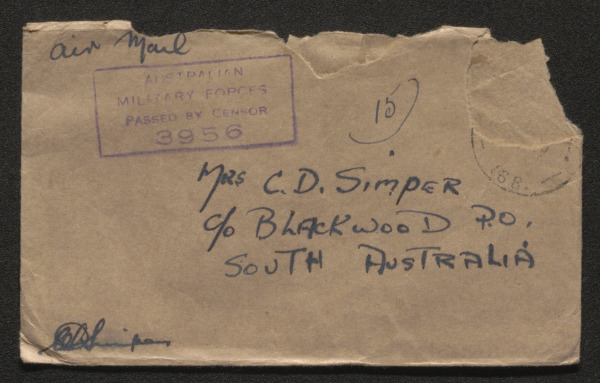 air Mail
AUSTRALIAN
MILITARY FORCES
PASSED BY CENSOR
3956
15
Mrs C.D. SIMPER
c/o BLACKWOOD P.O.
SOUTH AUSTRALIA
CDSimper